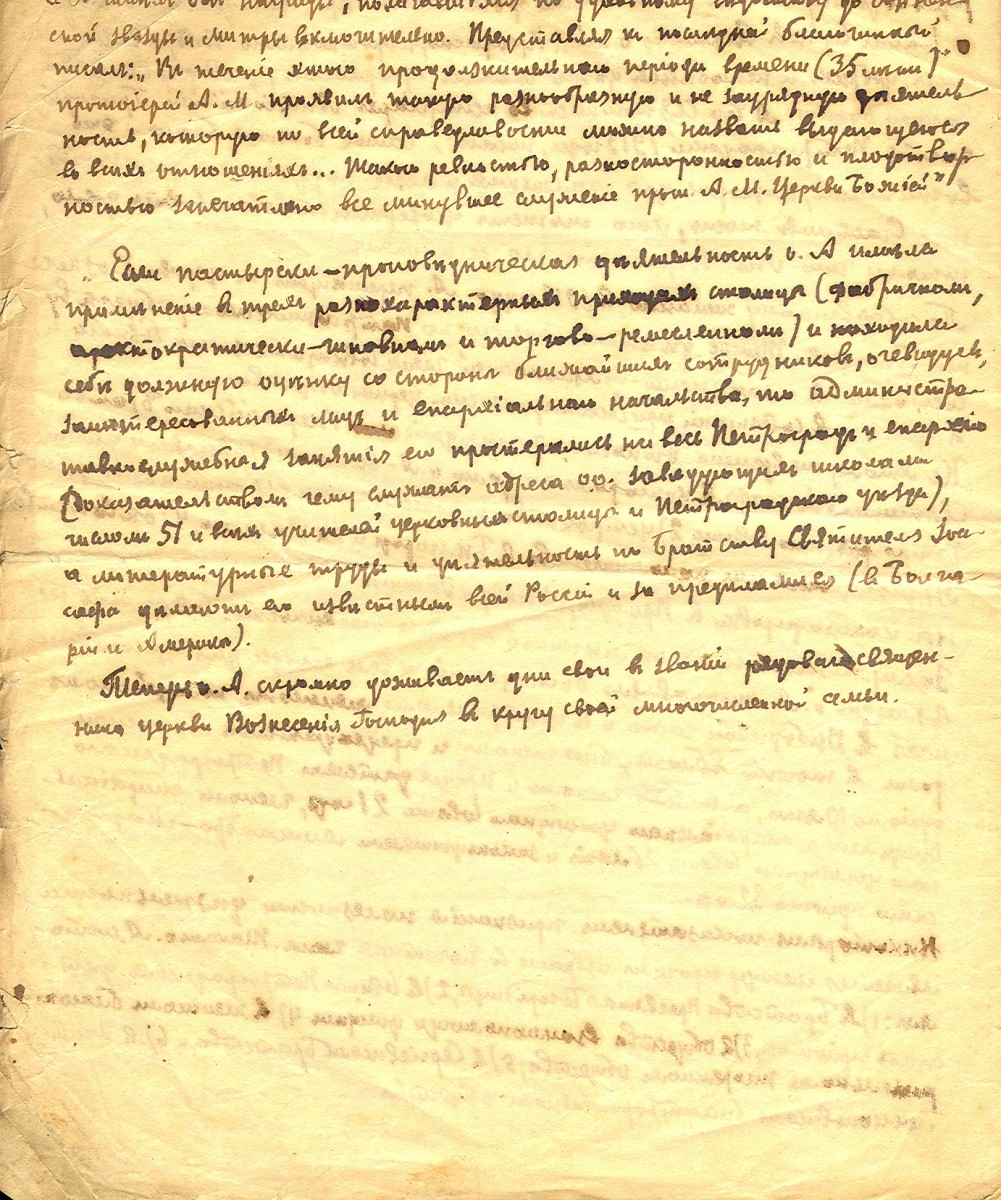 награды, по духовному
ской звезды и митры включительно. Представляя к последней благочинный
писал: „В течение этого продолжительного периода времени (35 лет)"
протоиерей А. М. проявил такую разнообразную и не заурядную деятель
ность, которую по всей справедливости можно назвать выдающуюся
во всех отношенiях... Такою ревностью, разносторонностью и плодотвор
ностью запечатлено все минувшее служение прот. А. М. Церкви Божiей"
Если пастырски-проповедническая деятельность о. А имела
применение в трех разнохарактерных приходах столицы (фабричном,
аристократически-чиновном и торгово-ремесленном) и находила
себе должную оценку со стороны ближайших сотрудников, очевидцев,
заинтересованных лиц и епархiального начальства, то администра
тивно служебная занятiя его простерались на весь Петроград и епархiю
(Доказательством чему служат адреса оо. Заведующих школами
числом 51 и всех учителей церковных столицы и Петроградского уезда),
а литературные труды и деятельность по Братству Святителя Iоа
сафа делают его известным всей Россiи и за пределами ея (в Болга
рiи и Америке).
Теперь о. А. скромно доживает дни свои в званiи рядового священ-
ника церкви Вознесенiя Господня в кругу своей многочисленной семьи.